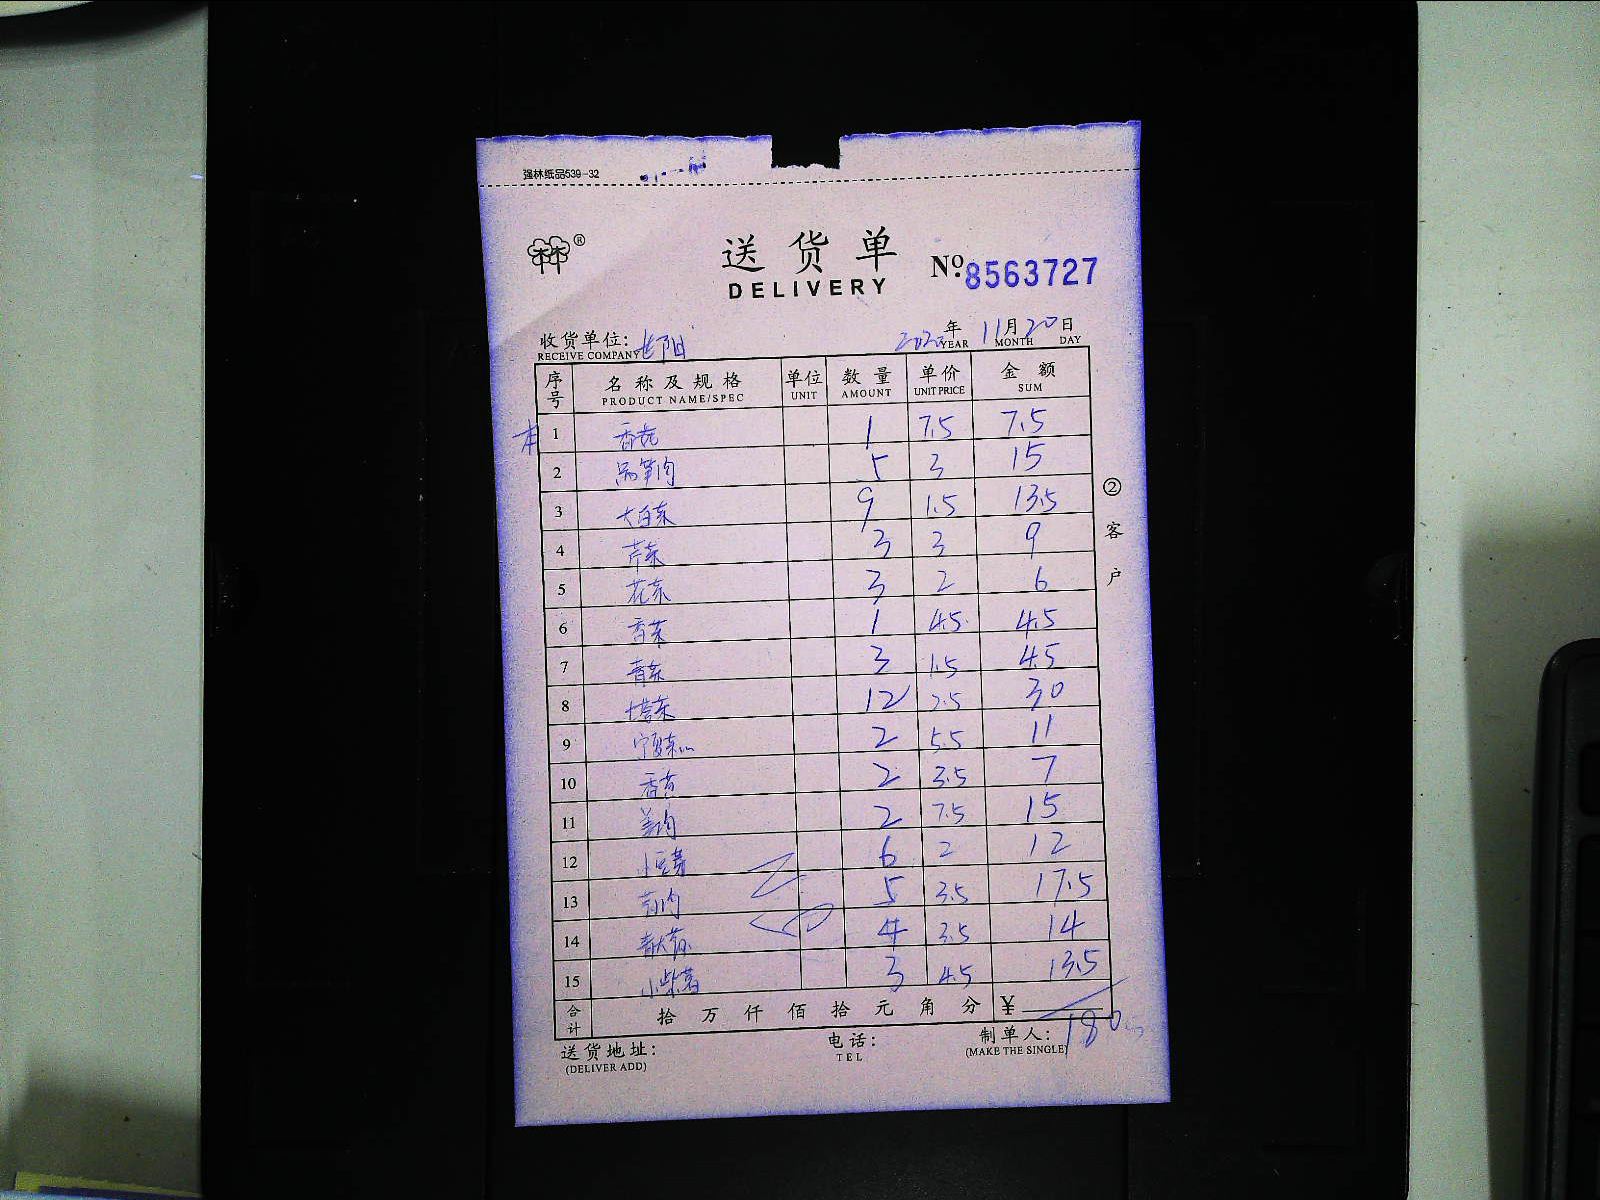 强林纸品539-32
林®
送货单
DELIVERY
Nº 8563727
收货单位:
RECEIVE COMPANY
年 11月20日
YEAR MONTH DAY
序号 名称及规格 单位 数量 单价 金额
PRODUCT NAME/SPEC UNIT AMOUNT UNIT PRICE SUM
1 香菇 1 7.5 7.5
2 5 3 15
3 大白菜 9 1.5 13.5
4 芹菜 3 3 9
5 花菜 3 2 6
6 香菜 1 4.5 4.5
7 青菜 3 1.5 4.5
8 塔菜 12 2.5 30
9 宁夏菜心 2 5.5 11
10 2 3.5 7
11 2 7.5 15
12 小豆芽 6 2 12
13 5 3.5 17.5
14 4 3.5 14
15 3 4.5 13.5
合计 拾万仟佰拾元角分 ¥ 180
②客户
送货地址: 电话: 制单人:
(DELIVER ADD) TEL (MAKE THE SINGLE)